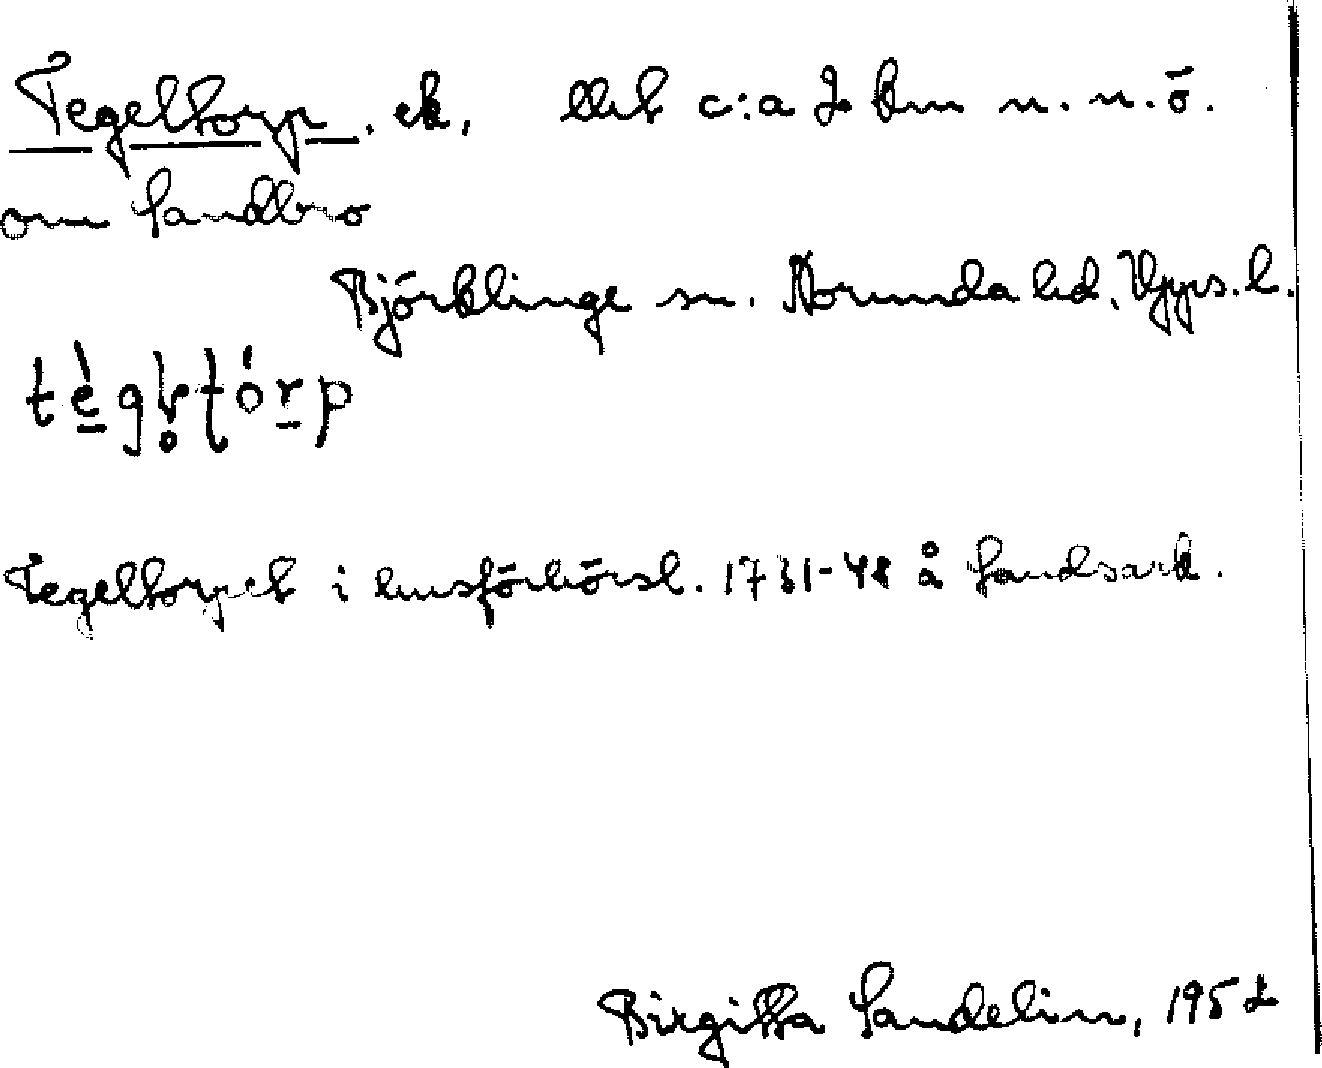 Tegeltorp, ek, llit c:a 2 km n.n.ö.
om Sandbro
Björklinge sn. Norunda hd. Upps.l.
Tegeltorpet i husförhörsl. 1731-48 å Landsark.
Birgitta Sandelin, 1952